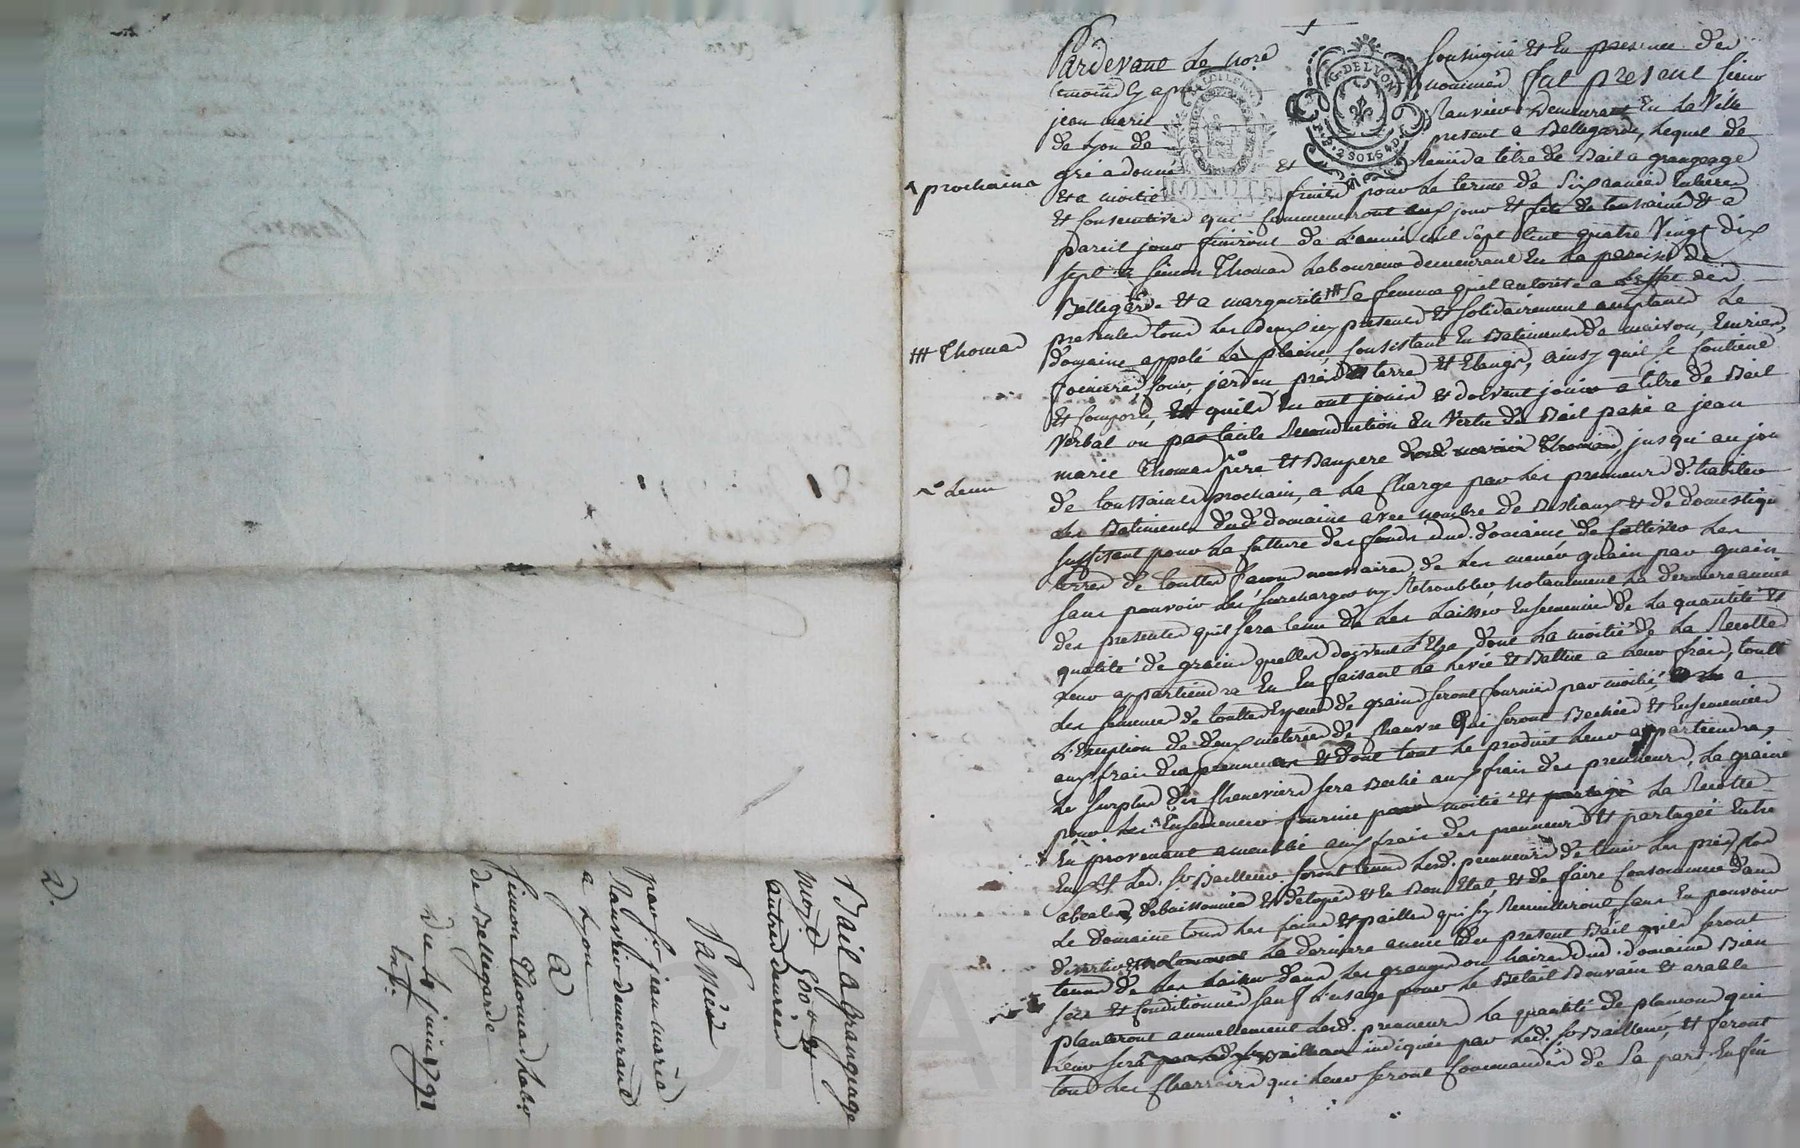 Bail a Grangeage
moyt 600 ₶ et
autres denrées
Passée
par Sr jean marie
Ranvier demeurant
a Lyon
a
simon Thomas Labr
de Bellegarde
Du 19 juin 1791
2.
Pardevant Le nore soussigné et En presence des
temoins Cy apres nommés fut present sieur
jean marie Ranvier Demeurant En La Ville
de Lyon de present a Bellegarde, Lequel de
gré a donné et Remis a titre de Bail a grangeage
et a moitié fruits pour Le terme de six années Entieres
^ prochaine
et consecutives qui commenceront aux jour et fete de toussaint et a
pareil jour finiront de L'année mil sept Cent quatre Vingt dix
sept a simon Thomas Laboureur demeurant En La paroisse de
Bellegarde et a marguerite ## sa femme quil autorise a L'effet des
## Thomas
presentes tous Les deux icy presents et solidairement acceptants Le
domaine appelé La plaine, Consistant En Batiments de maison, Ecuries,
Cour jardin prés terres et Etangs, ainsy quil se Contient
et Comporte, et quils En ont jouis et doivent jouir a titre de Bail
Verbal ou par tacite Reconduction En Vertu du Bail passé a jean
marie Thomas pere et Beaupere jusqu'au jour
^o Leur
de toussaints prochain, a La Charge par Les preneurs d'habiter
Les Batiments dud. domaine avec nombre de Bestiaux et de domestiques
suffisant pour La Culture des fonds dud. domaine de Cultiver Les
terres de touttes façons necessaires, de Les mener quain par quain
sans pouvoir Les surcharger ny Retroubler, notamment La derniere année
des presentes quil sera tenu de Les Laisser Ensemencées de La quantité et
qualité de grains quelles doivent L'Etre dont La moitié de La Recolte
Leur appartiendra En En faisant La Levée et Battue a Leur frais, toutte
Les semence de touttes Especes de grains seront fournies par moitié, a
L'Exception de deux meterées de chanvre qui seront Bechées et Ensemencées
aux frais des preneurs et dont tout Le produit Leur appartiendra,
Le surplus des Chenevieres sera Beché aux frais des preneurs, La graine
pour Les Ensemencer fournie par moitié et La Recolte
En provenant accueillie aux frais des preneurs et partagée Entre
Eux et Led. Sr Bailleur seront tenus Lesd. preneurs de tenir Les prés
debuissonnés et En Bon Etat, et de faire Consommer dans
Le domaine tous Les foins et pailles qui sy Recuilleront sans En pouvoir
divertir La derniere année du present Bail quils seront
tenus de Les Laisser dans Les granges ou haires dud. domaine Bien
secs et Conditionnés sauf L'usage pour Le Betail Bouvain et arable
planteront annuellement Lesd. preneurs La quantité de plançons qui
Leur sera indiquée par Led. Sr Bailleur, et feront
tous Les Charrois qui Leur seront Commandés de sa part. Enfin
G. DE LYON
2 SOLS 4 D
MINUTE